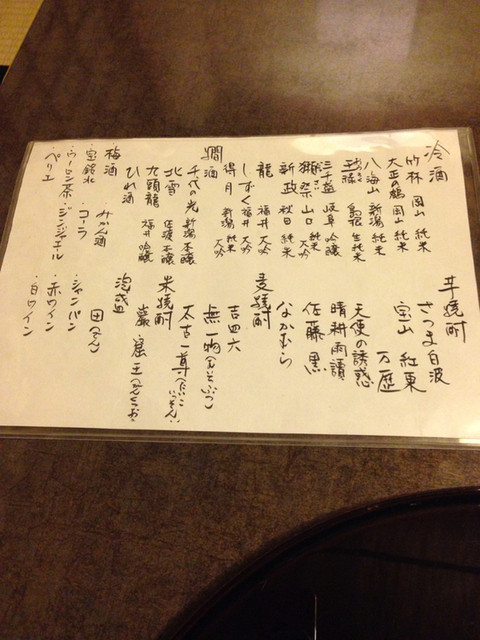 冷酒
竹林 岡山 純米
大正の鶴 岡山 純米
八海山 新潟 純米
王祿 島根 生純米
三千盛 岐阜 吟醸
獺祭 山口 大吟
新政 秋田 純米
龍 福井 大吟
しずく 福井 大吟
得月 新潟 純米大吟
燗酒
千代の光 新潟 本醸
北雪 佐渡 本醸
九頭龍 福井 吟醸
ひれ酒
梅酒 みかん酒
・宝鉱水 ・コーラ
・ウーロン茶・ジンジャエール
・ペリエ
芋焼酎
さつま白波
宝山 紅東
万暦
天使の誘惑
晴耕雨讀
佐藤 黒
なかむら
麦焼酎
吉四六
無一物(むいちぶつ)
米焼酎
太壱一尊(たいいついっそん)
巌窟王(がんくつおう)
泡盛
田(でん)
・シャンパン
・赤ワイン
・白ワイン